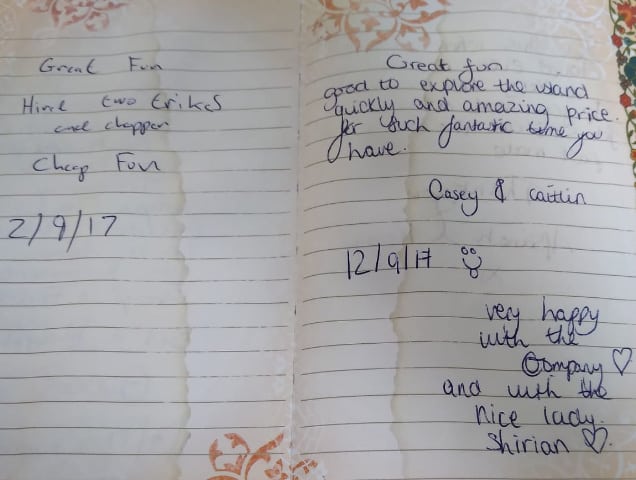 Great Fun
Hire two trikes
and chopper
Cheap Fun
2/9/17
Great fun
good to explore the island
quickly and amazing price.
for such fantastic time you
have.
Casey & Caitlin
12/9/17
very happy
with the
Company ♡
and with the
nice lady.
Shirian ♡.